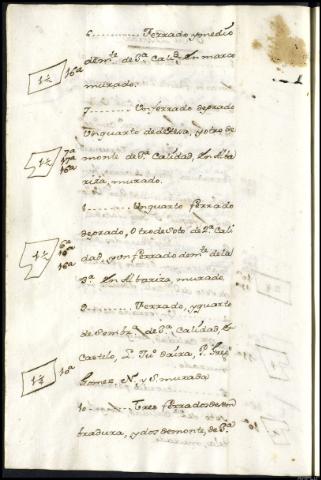 6......... Ferrado y medio
de m.te de 3.a Calid.d en marco
murado.
1½ 16a
7......... Un ferrado de prado
Un quarto de dehesa, y otro de
monte de 3.a Calidad, En Alba
riza, murado.
1½ 7a 17a 16a
Un quarto ferrado
de prado, Otro de soto de 2.a Cali
dad, y un ferrado de m.te de la
3.a En Albariza, murado
1½ 6a 16a
9......... Ferrado, y quarto
de Sembr.a de 3.a Calidad, En
Castelo, L.
N. y S. murada
1¼ 10a
10......... Tres ferrados de sem
bradura, y dos de monte, de 3.a